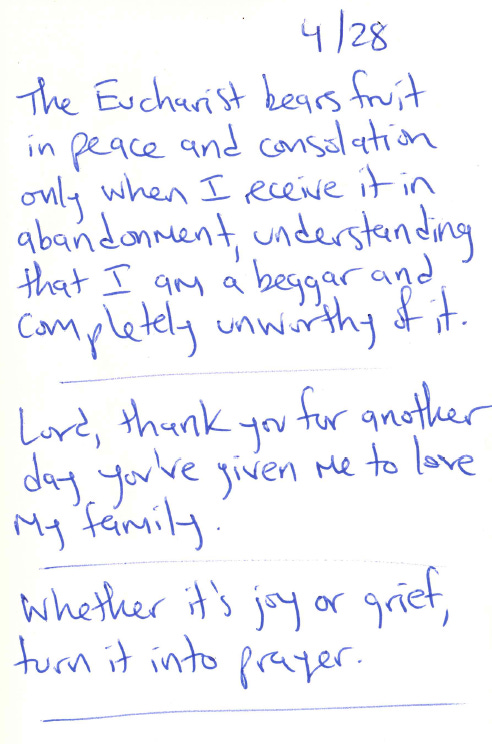 4/28
The Eucharist bears fruit
in peace and consolation
only when I receive it in
abandonment, understanding
that I am a beggar and
completely unworthy of it.
Lord, thank you for another
day you've given me to love
my family.
Whether it's joy or grief,
turn it into prayer.